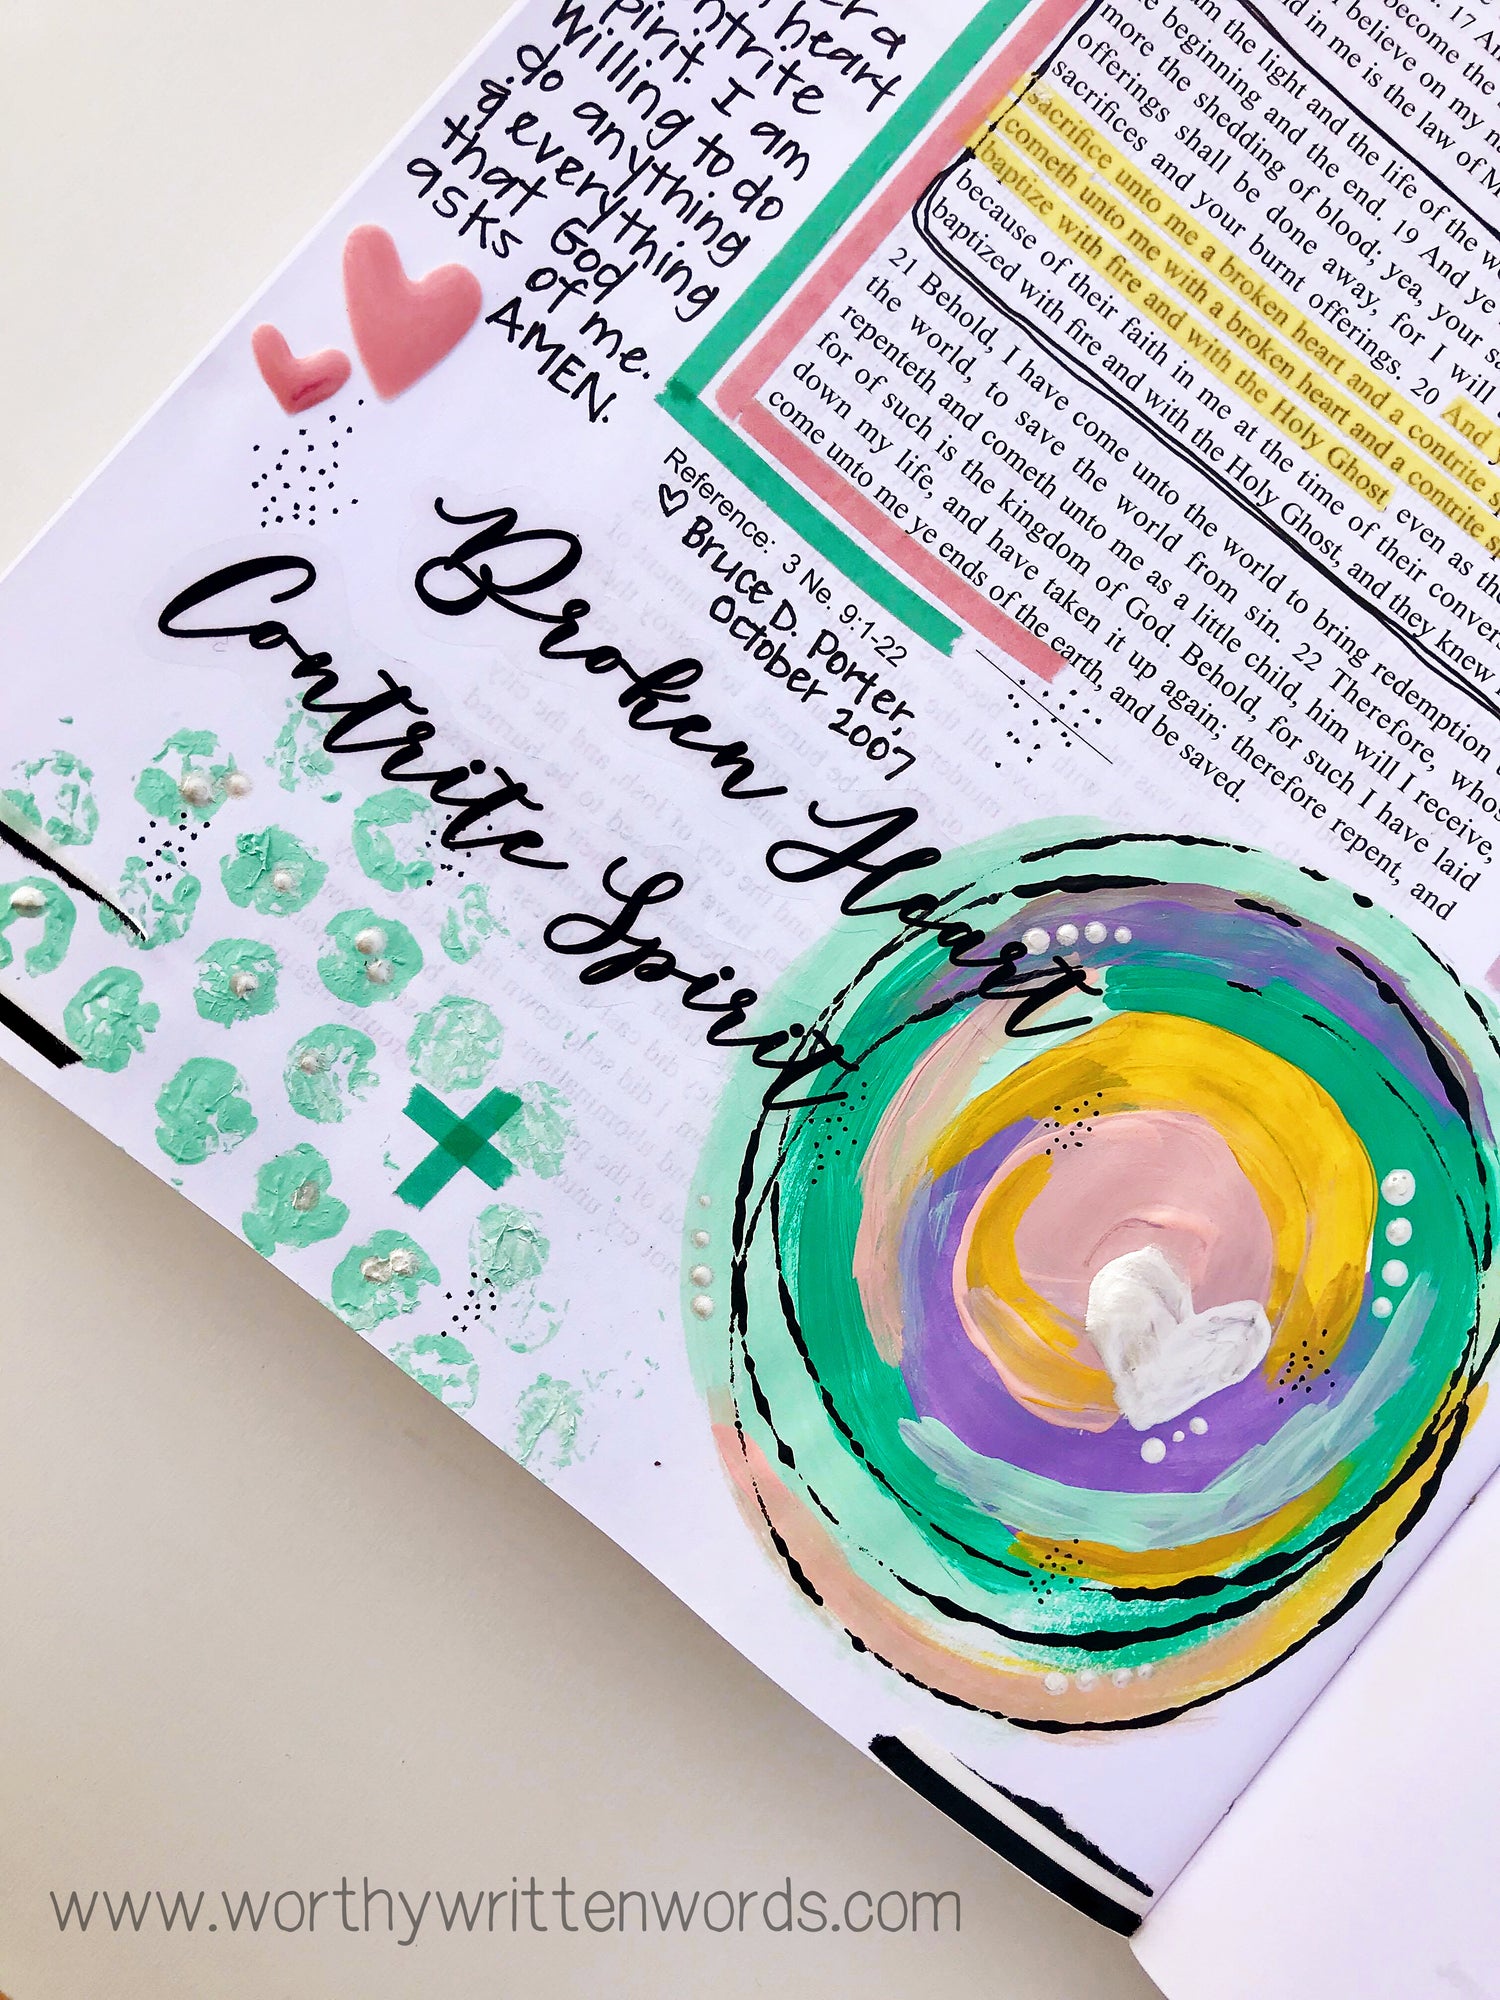 a
heart
contrite
spirit. I am
willing to do
do anything
& everything
that God
asks of me.
AMEN.
become the
17 And
I believe on my
and in me is the law of
am the light and the life of the
the beginning and the end. 19 And ye
more the shedding of blood; yea, your
offerings shall be done away, for I will
sacrifices and your burnt offerings. 20 And
sacrifice unto me a broken heart and a contrite
cometh unto me with a broken heart and a contrite
baptize with fire and with the Holy Ghost, even as the
because of their faith in me at the time of their
baptized with fire and with the Holy Ghost, and they knew
21 Behold, I have come unto the world to bring redemption
the world, to save the world from sin. 22 Therefore,
repenteth and cometh unto me as a little child, him will I receive,
for of such is the kingdom of God. Behold, for such I have laid
down my life, and have taken it up again; therefore repent, and
come unto me ye ends of the earth, and be saved.
Reference: 3 Ne. 9:1-22
Bruce D. Porter,
October 2007
Broken Heart
Contrite Spirit
www.worthywrittenwords.com